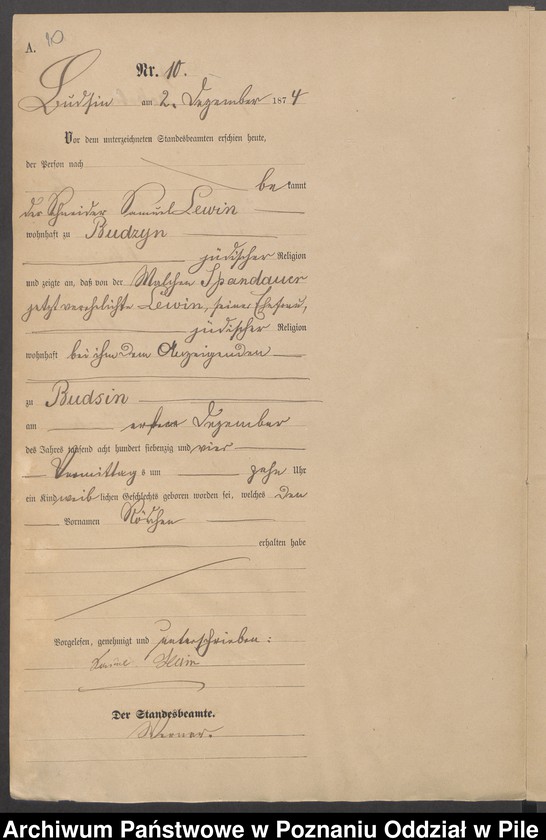 A. 10
Nr. 10.
Budsin am 2. Dezember 1874
Vor dem unterzeichneten Standesbeamten erschien heute,
der Person nach
bekannt
der Schneider Samuel Lewin
wohnhaft zu Budzyn
jüdischer Religion
und zeigte an, daß von der Malchen Spandauer
jetzt verehelichte Lewin, seiner Ehefrau,
jüdischer Religion
wohnhaft bei ihm dem Anzeigenden
zu Budsin
am ersten Dezember
des Jahres tausend acht hundert siebenzig und vier
Vormittags um zehn Uhr
ein Kind weiblichen Geschlechts geboren worden sei, welches den
Vornamen Röschen
erhalten habe
Vorgelesen, genehmigt und unterschrieben:
Der Standesbeamte.
Werner.
Archiwum Państwowe w Poznaniu Oddział w Pile